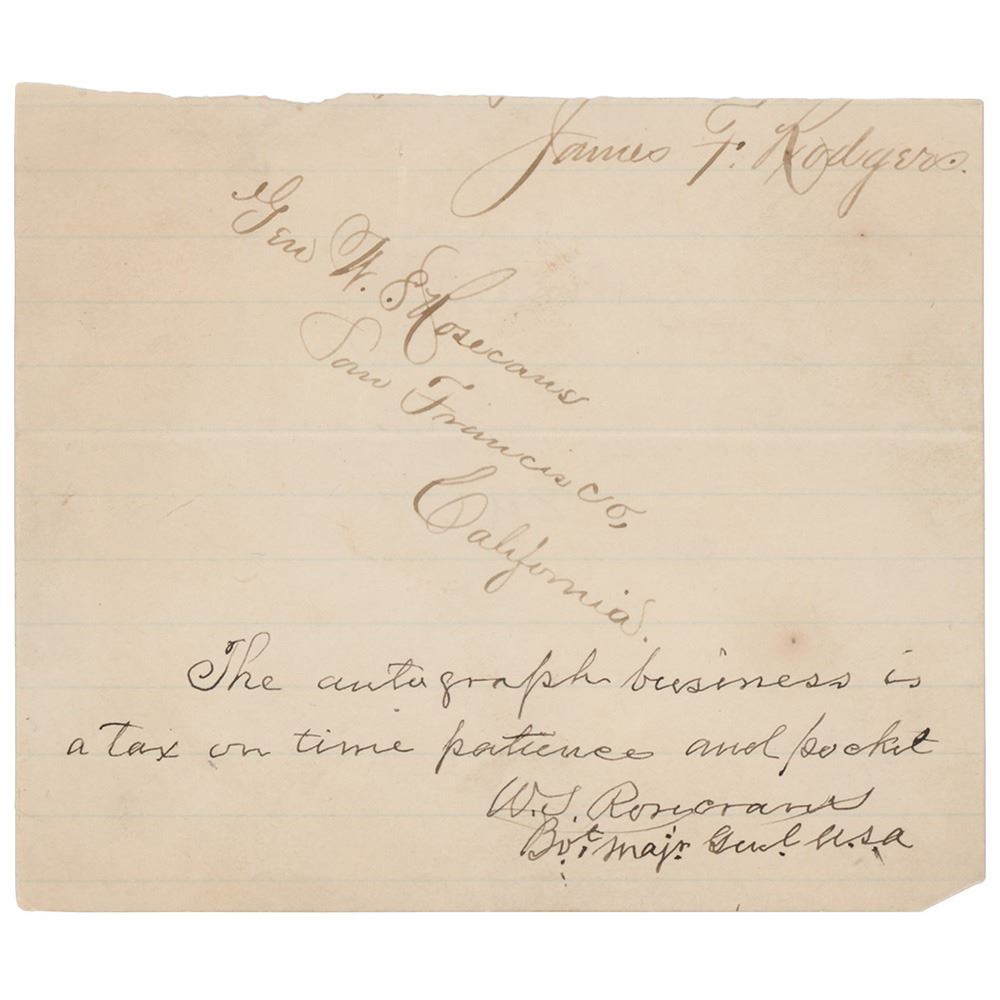 James F. Rodgers.
Gen W. S. Rosecans
San Francisco,
California.
The autograph business is
a tax on time patience and pocket
W. S. Rosecrans
Bvt. Majr. Genl. U.S.A